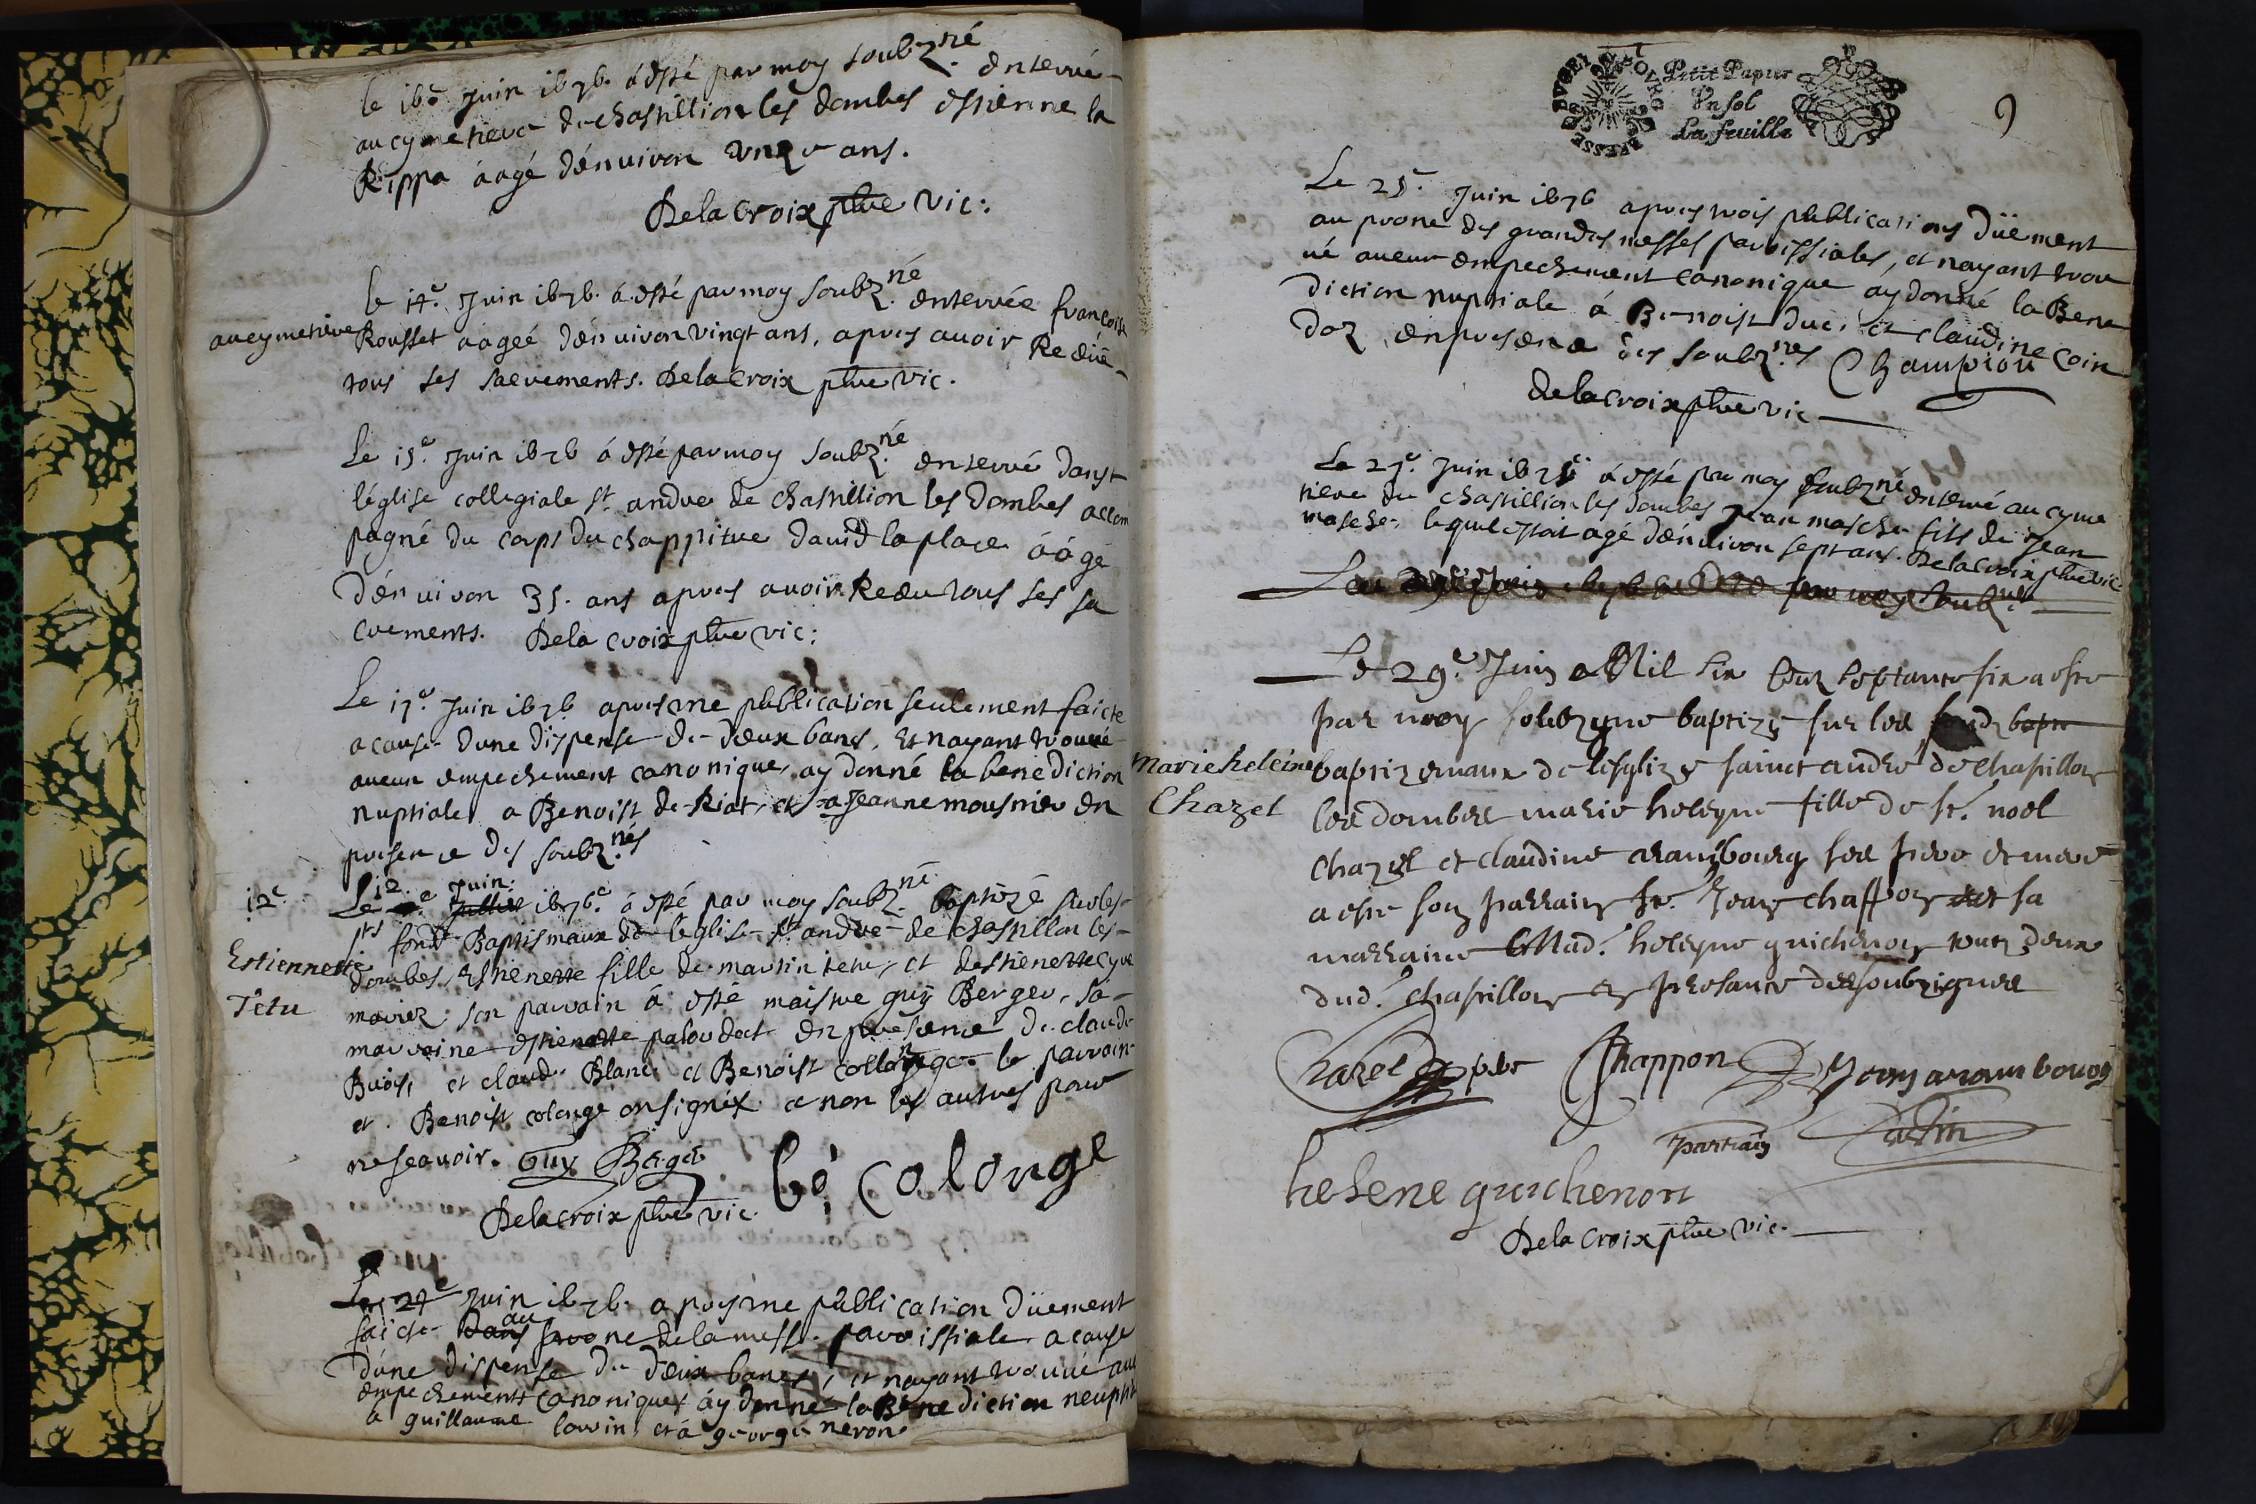 le 16e Juin 1676. á esté par moy soubz.né enterré
au cymetiere de chastillion les dombes estienne la
Rippa áagé dénviron ans.
Dela croix pbre vic:
le 14.e Juin 1676. á esté par moy soubz.né enterrée francoise
au cymetiere
Rousset áagée dénviron vingt ans, apres avoir Receu
tous ses sacrements. Dela Croix pbre vic.
Le 15.e Juin 1676 á esté par moy soubz.né enterré dans
léglise collegiale St. andre de chastillion les Dombes accom
pagné du corps du chappitre david la place áágé
dénviron 35. ans apres avoir Receu tous ses sa
crements. Dela croix pbre vic:
Le 17.e Juin 1676 apres une publication seulement faicte
a cause dune dispense de deux bancs, Et nayant trouvé
aucun empechement canonique, ay donné la benediction
nuptiale a Benoist de Riat, et a Jeanne mousnier en
presence des soubz.nés
12e
Le 12.e Juin Juillet 1676.e á esté par moy soubz.né baptizé sur les
pts fonds Baptismaux de leglise St andre de chastillon les
Estiennette
Têtu
dombes, Estienette fille de martin tetu, et destienette
mariez. son parrain á esté maistre guÿ Berger, sa
marraine estienette paloudect en presence de claude
Buoist, et claude Blanc, et Benoist collonge le parrain
et Benoist colonge on signéz ce non les autres pour
ne scavoir. Guy Berger bé colonge
Dela croix pbre vic.
Le 24e Juin 1676. apres une publication düement
faicte Dans au prone dela messe paroissiale a cause
dúne dispense de deux bancs, et nayant trouvé auc
empechements canoniques áy donné la Benediction neuptial
a guillaume lowin, et á george neron
Petit Papier
Un sol
La feuille
9
Le 25.e Juin 1676 apres trois publications düement
au prone des grandes messes paroissiales, et nayant trou
vé aucun empechement canonique ay donné la Bene
diction nuptiale á Benoist duc, et claudine Coin
doz, en presence des soubz.nés Champion
dela croix pbre vic
Le 27.e Juin 1676 á esté par moy soubz.né enterré au cyme
tiere de chastillion les dombes Jean masche fils de Jean
masche lequel estoit agé dénviron sept ans. Dela croix pbre vic
Le 29.e Juin Mil six cent septante six a esté
par moy soubzigne baptizé sur les fonds bapt
Marie heleine
Chazel
baptizemaux de lesglize sainct andré de chastillon
les dombes marie heleyne fille de sr. noel
chazel et claudine arambourg ses pere et mere
a esté son parrain sr. Jean chappon et sa
marraine Mad.e heleyne guichenon tout deux
dud.t chastillon en presance des soubzignes
Chazel pbr Chappon Jean arambourg
parrain
helene guichenon
Dela Croix pbre vic.